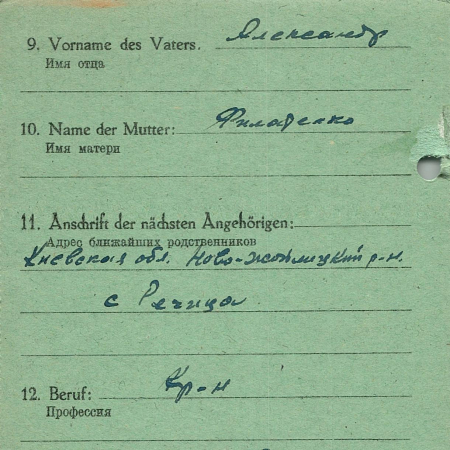 9. Vorname des Vaters. Александр
Имя отца
10. Name der Mutter: Филатенко
Имя матери
11. Anschrift der nächsten Angehörigen:
Адрес ближайших родственников
Киевская обл. Ново-
с Речица
12. Beruf: Кр-н
Профессия